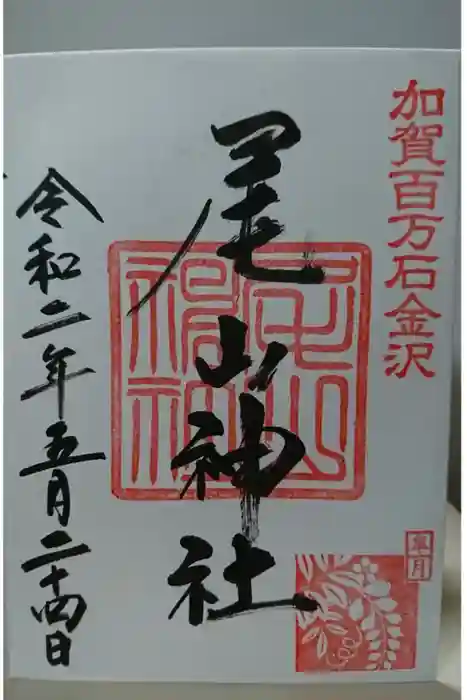 加賀百万石金沢
尾山神社
尾山神社
皐月
令和二年五月二十四日